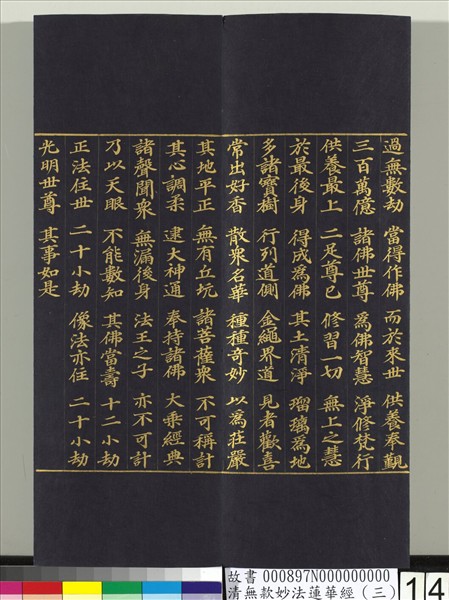 過無數劫　當得作佛　而於來世　供養奉覲
三百萬億　諸佛世尊　為佛智慧　淨修梵行
供養最上　二足尊已　修習一切　無上之慧
於最後身　得成為佛　其土清淨　瑠璃為地
多諸寶樹　行列道側　金繩界道　見者歡喜
常出好香　散眾名華　種種奇妙　以為莊嚴
其地平正　無有丘坑　諸菩薩眾　不可稱計
其心調柔　逮大神通　奉持諸佛　大乘經典
諸聲聞眾　無漏後身　法王之子　亦不可計
乃以天眼　不能數知　其佛當壽　十二小劫
正法住世　二十小劫　像法亦住　二十小劫
光明世尊　其事如是
故書 000897N000000000
清無款妙法蓮華經（三）
14